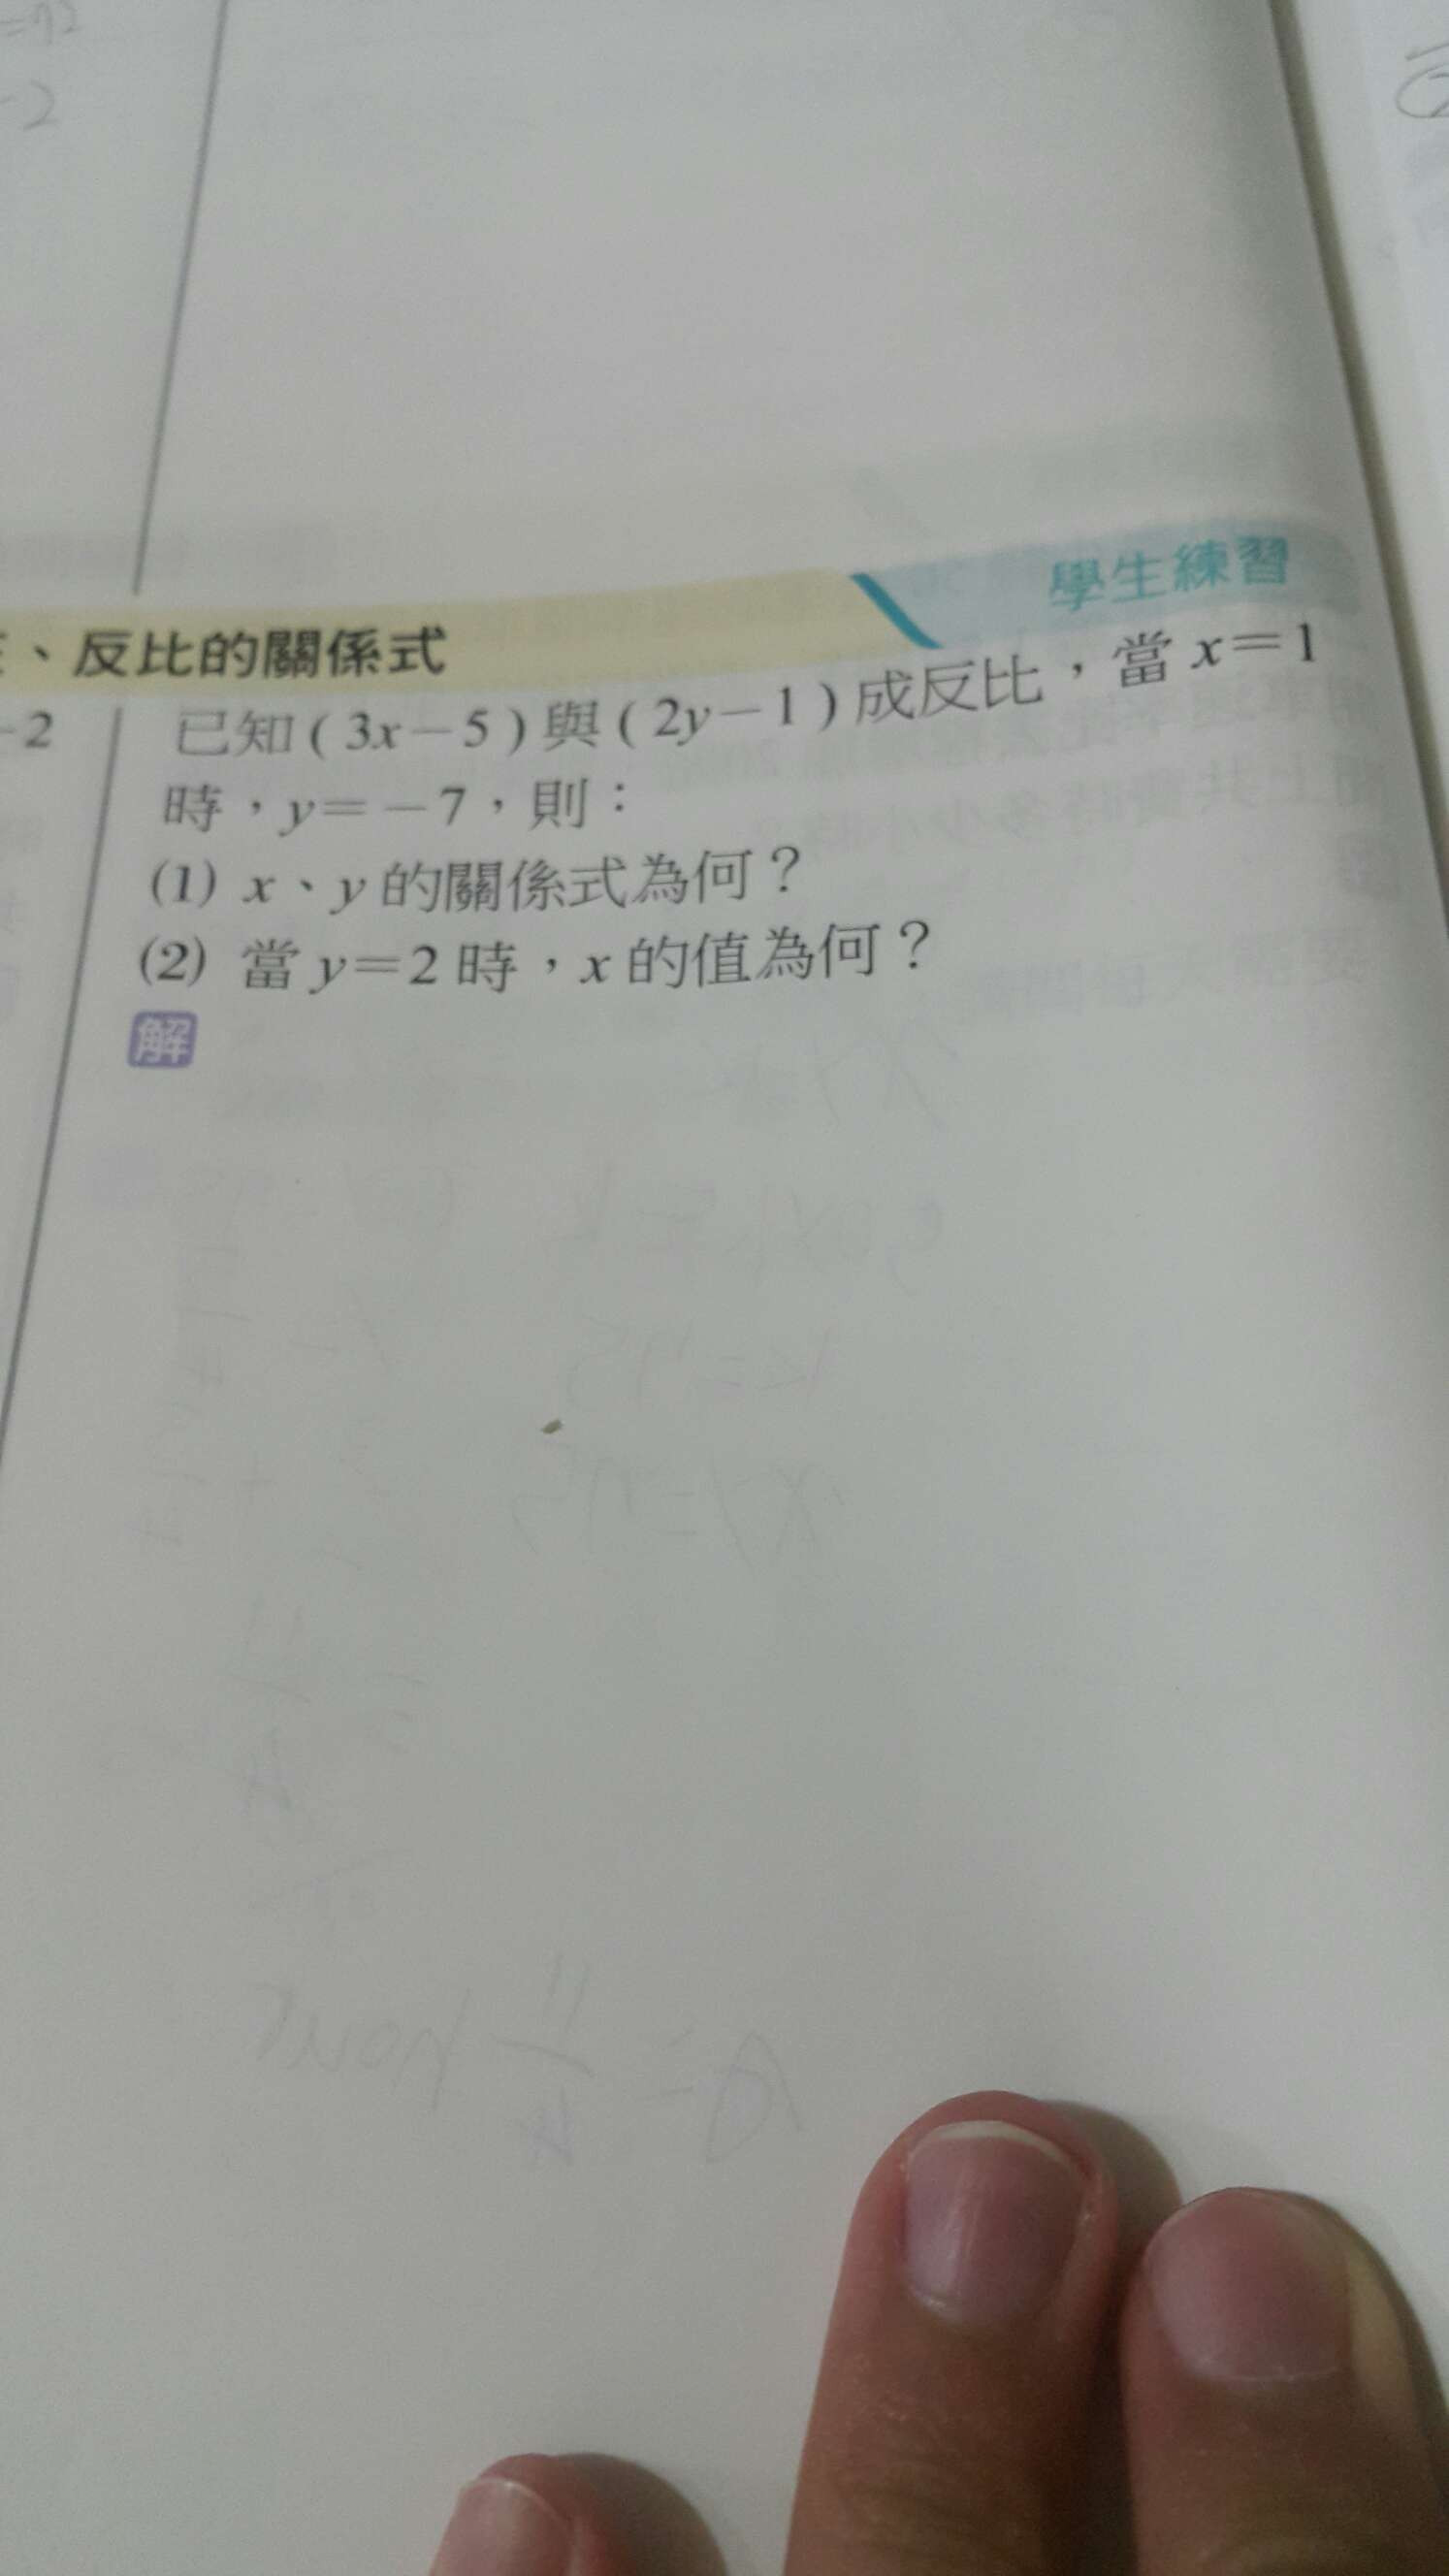 =72
-2
學生練習
、反比的關係式
-2
已知(3x-5)與(2y-1)成反比,當x=1
時,y=-7,則:
(1) x、y的關係式為何?
(2) 當y=2時,x的值為何?
解